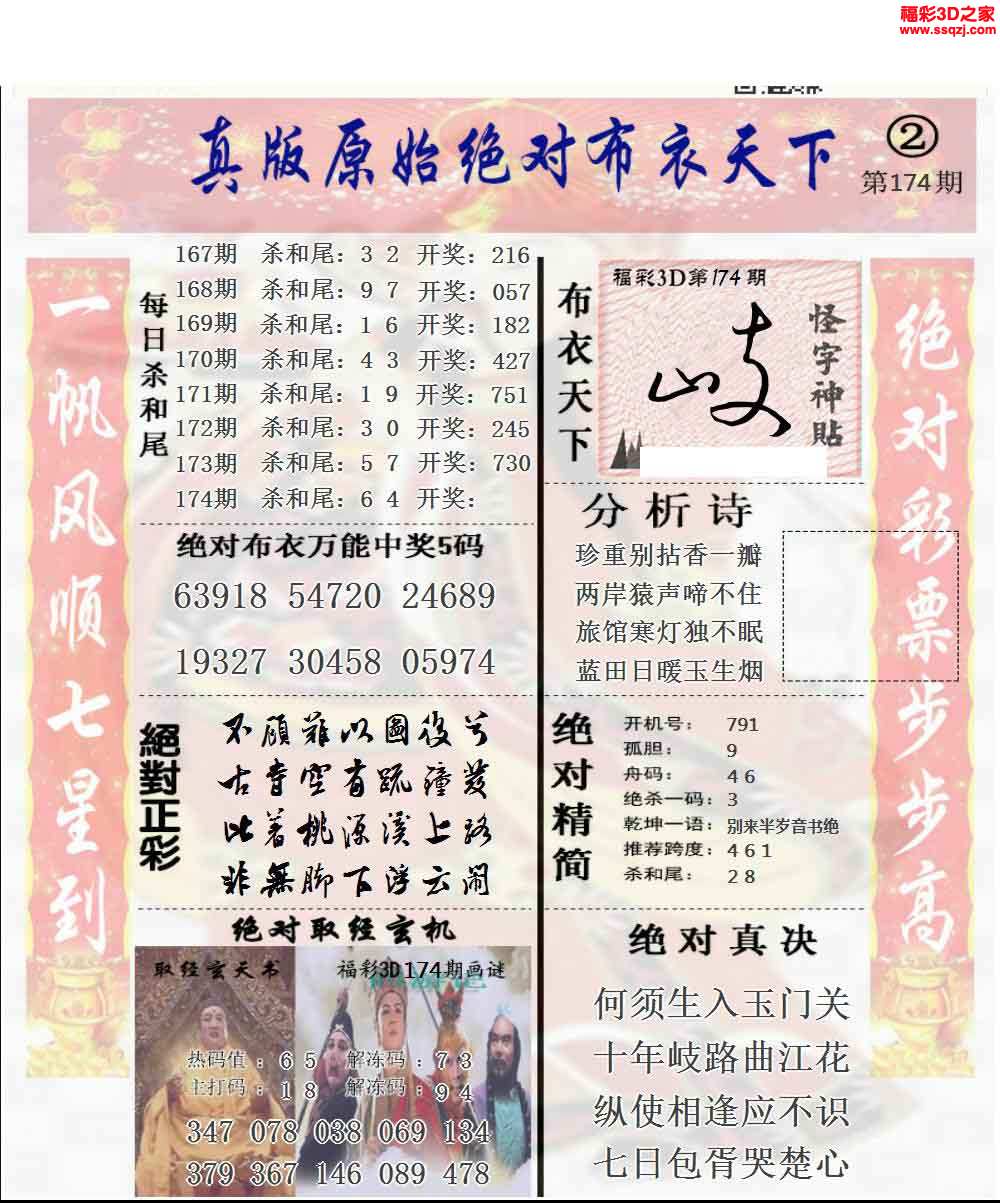 福彩3D之家
www.ssqzj.com
真版原始绝对布衣天下
②
第174期
一帆风顺七星到
每日杀和尾
167期 杀和尾：3 2 开奖：216
168期 杀和尾：9 7 开奖：057
169期 杀和尾：1 6 开奖：182
170期 杀和尾：4 3 开奖：427
171期 杀和尾：1 9 开奖：751
172期 杀和尾：3 0 开奖：245
173期 杀和尾：5 7 开奖：730
174期 杀和尾：6 4 开奖：
绝对布衣万能中奖5码
63918 54720 24689
19327 30458 05974
絕對正彩
不顾难以图后兮
古寺空有疏钟发
比着桃源溪上路
非無脚下浮云闹
绝对取经玄机
取经玄天书
福彩3D174期画谜
热码值：6 5 解冻码：7 3
主打码：1 8 解冻码：9 4
347 078 038 069 134
379 367 146 089 478
布衣天下
福彩3D第174期
岐
怪字神貼
分析诗
珍重别拈香一瓣
两岸猿声啼不住
旅馆寒灯独不眠
蓝田日暖玉生烟
绝对精简
开机号： 791
孤胆： 9
舟码： 4 6
绝杀一码：3
乾坤一语：别来半岁音书绝
推荐跨度：4 6 1
杀和尾： 2 8
绝对真决
何须生入玉门关
十年岐路曲江花
纵使相逢应不识
七日包胥哭楚心
绝对彩票步步高